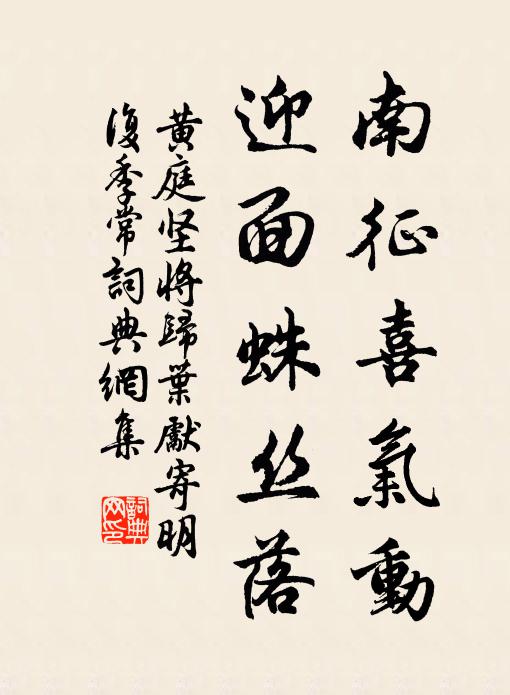 南征喜氣動
迎面蛛丝落
黄庭坚將歸葉獻寄明
復季常詞典網集
詞典
网印